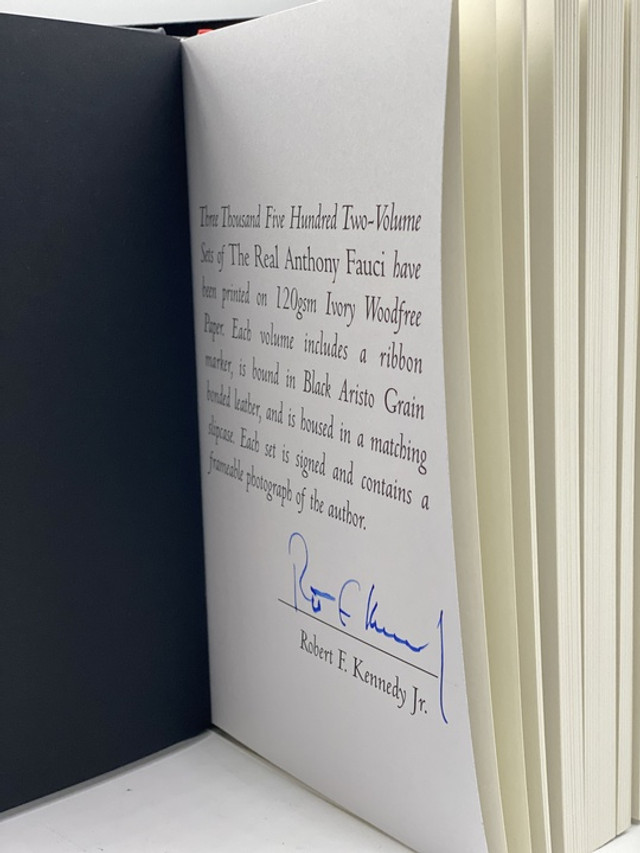 Three Thousand Five Hundred Two-Volume
Sets of The Real Anthony Fauci have
been printed on 120gsm Ivory Woodfree
Paper. Each volume includes a ribbon
marker, is bound in Black Aristo Grain
bonded leather, and is housed in a matching
slipcase. Each set is signed and contains a
frameable photograph of the author.
Robert F. Kennedy Jr.